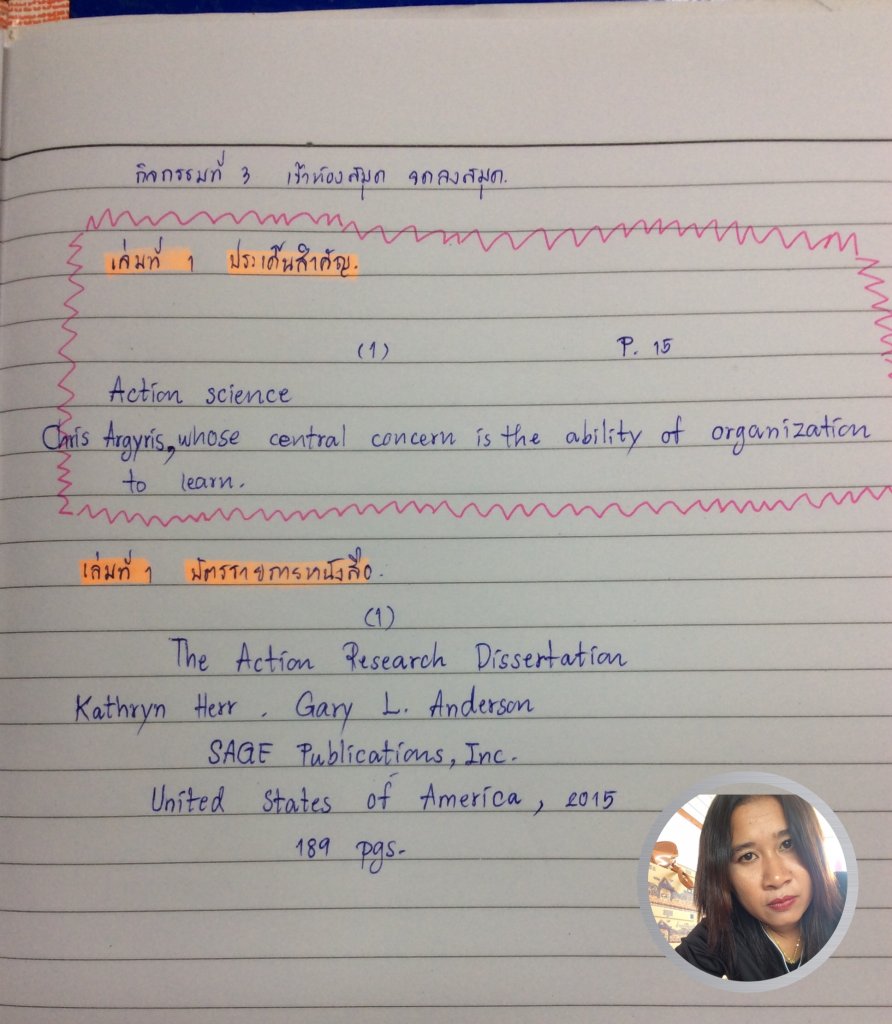 กิจกรรมที่ 3 เข้าห้องสมุด จดลงสมุด.
เล่มที่ 1 ประเด็นสำคัญ.
(1) P. 15
Action science
Chris Argyris, whose central concern is the ability of organization
to learn.
เล่มที่ 1 บัตรรายการหนังสือ.
(1)
The Action Research Dissertation
Kathryn Herr . Gary L. Anderson
SAGE Publications, Inc.
United States of America, 2015
189 pgs.